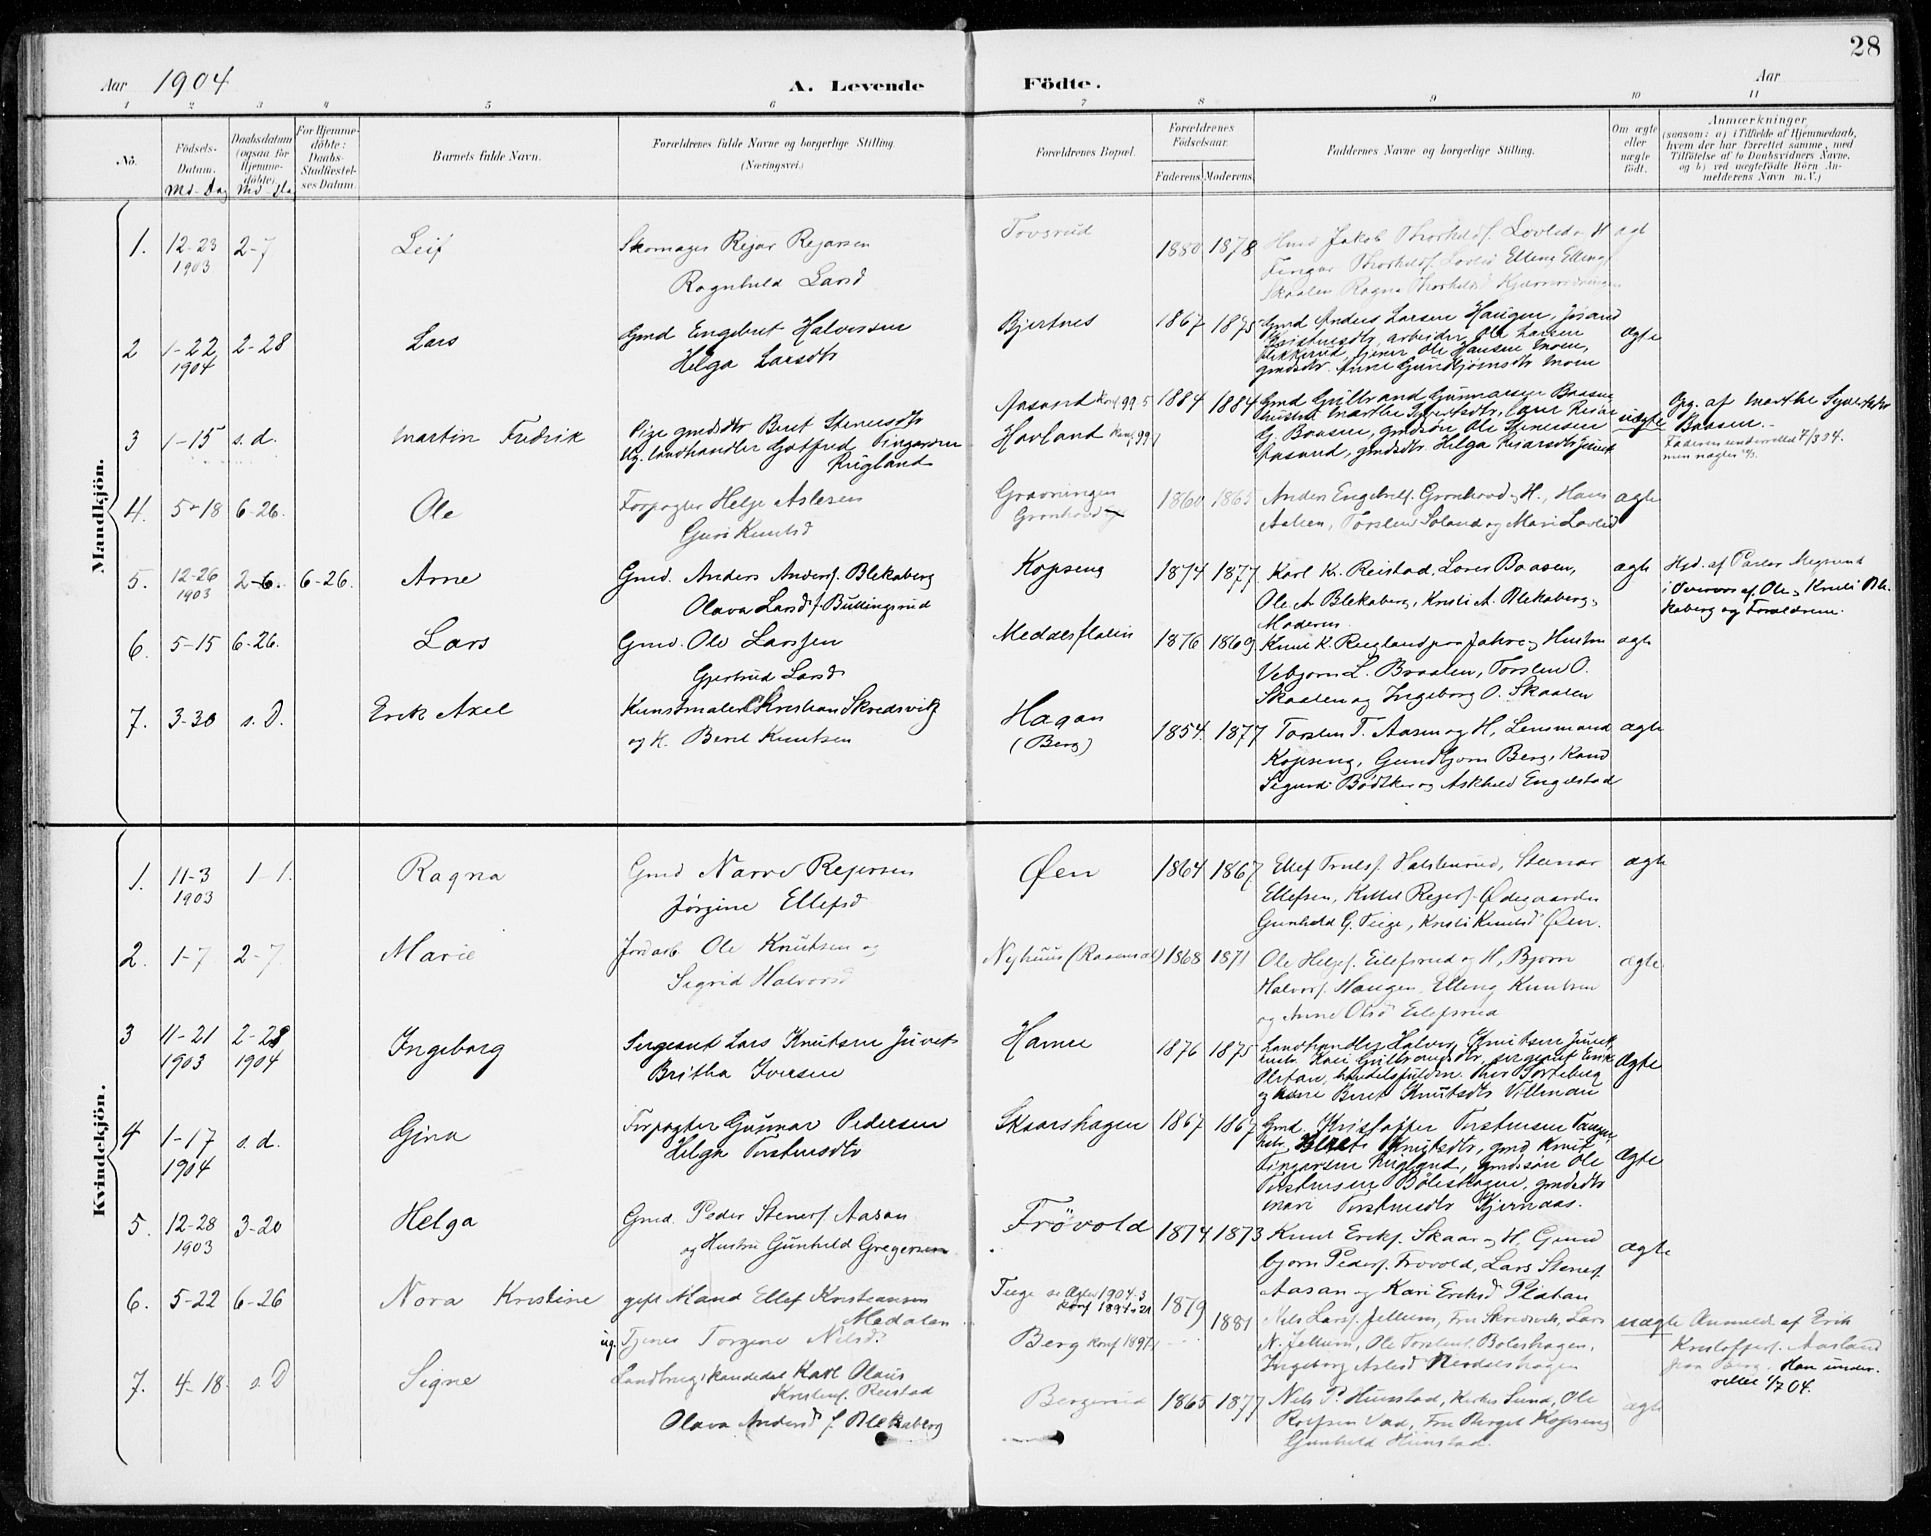 28
Aar 1904
A. Levende Födte.
Aar
1 2 3 4 5 6 7 8 9 10 11
Nö.
Födsels-Datum.
Md. Dag
Daabsdatum (ogsaa for Hjemmedöbte).
Md Dag
For Hjemmedöbte: Daabs-Stadfæstelses Datum.
Barnets fulde Navn.
Forældrenes fulde Navne og borgerlige Stilling (Næringsvei.)
Forældrenes Bopæl.
Forældrenes Födselsaar.
Faderens Moderens
Faddernes Navne og borgerlige Stilling.
Om ægte eller uægte födt.
Anmærkninger, (saasom: a) i Tilfælde af Hjemmedaab, hvem der har forrettet samme, med Tilföielse af to Daabsvidners Navne, og b) ved uægtefödte Börn Anmelderens Navn m. V.)
Mandkjön.
1. 12-23 1903 2-7 Leif
Skomager Rejar Rejarsen
Ragnhild Larsd
Tovsrud 1880 1878
Jakob Thorkelds. Lovlid og H
Skaalen, Ragna
2 1-22 1904 2-28 Lars
Gmd Engebret Halvorsen
Helga Larsdtr
Bjertnes 1867 1875
Gmd Anders Larsen Haugen, Jöran
Kristensdtr, arbeider Ole Larsen
tjener Ole Hansen Moen,
gmdsdtr. Anne Gundbjörnsdtr Moen
ægte
3 1-15 s.d. Martin Fredrik
Pige gmdsdtr Berit Stenersdtr
Ug. landhandler Gotfred Fingarsen
Rugland
Aasand konf 99 5
Havland konf 99
1884 1884
Gmd Gulbrand Gunnarsen Baasen
hustru Marthe Syvertsdtr,
G. Baasen, gmdsön Ole Stenersen
Aasand, gmdsdtr. Helga Reiarsdtr Juvet
uægte
Opg. af Marthe Syvertsdtr
Baasen.
Faderen underrettet 7/3 04.
men nægter
4. 5-18 6-26. Ole
Forpagter Helge Aslesen
Guri Knutsd
Gravningen
Grönhovd
1860 1865
Anders Engebrets. Gronhovd og H., Hans
Aasen, Torsten Soland og Mari Lovlid
ægte
5. 12-26 1903 2-6. 6-26. Arne
Gmd. Anders Anders. Blekaberg
Olava Larsd f. Bullingsrud
Kopseng 1874 1877
Karl K. Reistad, Lars Baasen,
Ole A Blekaberg, Kristi A. Blekaberg,
Moderen.
ægte
Hjd. af Pastor
i Overvær af Ole og Kristi Ble-
kaberg og Forældrene.
6. 5-15 6-26. Lars
Gmd. Ole Larssen
Gjertrud Larsd
Meddesflaten 1876 1869
Knut K. Ruglandjra Jahre og Hustru
Vebjorn L. Braaten, Torsten O.
Skaalen og Ingeborg O. Skaalen
ægte
7. 3-30 s. D. Erik Axel
Kunstmaler Chr Kristian Skredsvig
og H. Beret Knutsen
Hagan
(Berg)
1854 1877
Torsten T. Aasen og H, Lensmand
Kopseng, Gundbjorn Berg, Kand
Sigurd Bödtker og Askhild Engelstad
ægte
Kvindekjön.
1. 11-3 1903 1-1. Ragna
Gmd Narve Rejersen
Jörgine Ellefsd
Øen 1864 1867
Ellef Truls. Halstenrud, Stenar
Ellefsen, Kittel Rejers. Ødegaarden
Gunhild G. Teige, Kristi Knutsd Øen.
ægte
2. 1-7 2-7. Marie
Jordarb. Ole Knutsen og
Sigrid Halvorsd
Nyhuus (Raaen) 1868 1871
Ole Helges. Eilefsrud og H, Bjorn
Halvors. Haugen, Elling Knutsen
og Anne Olsd Eilefsrud
ægte
3 11-21 1903 2-28 1904 Ingeborg
Sergeant Lars Knutsen Juvet
Britha Iversen
Hamre 1876 1875
Landhandler Halvor Knutsen Juvet
hustr. Kari Gulbrandsdtr, sergeant Erik
Plstan, handelsfuldm. Thor Torteberg
og Beret Knutsdtr Villman
ægte
4 1-17 1904 s. d. Gina
Forpagter Gunnar Pedersen
Helga Torstensdtr
Skaarshagen 1867 1867
Gmd. Kristoffer Torstensen Tangen,
hstr. Beret Knutsdtr, gmd Knut
Fingarsen Rugland, gmdsön Ole
Torstensen Böleshagen, gmdsdtr
Mari Torstensdtr Kjernaas.
ægte
5. 12-28 1903 3-20 Helga
Gmd. Peder Steners. Aasan
og Hustru Gunhild Gregersen
Frövold 1874 1873
Knut Eriks. Skaar og H, Gund
bjorn Peders. Frovold, Lars Steners.
Aasan og Kari Eriksd Plstan
ægte
6. 5-22 6-26 Nora Kristine
gift Mand Ellef Kristiansen
Medalen
ug. Tjenes Torgine Nilsd.
Teige se Ægtev 1904-3
konf 1894-21
Berg konf 1897
1879
1881
Nils Lars. Jellum, Fru Skredsvik, Lars
N. Jellum, Ole Torstens. Boleshagen,
Ingeborg Aslesd
uægte
Anmeldt af Erik
Kristoffers. Aasland
Han under-
rettet 1/7 04.
7. 4-18. s. D Signe
Landbrugskandidat Karl Olaus
Kristens. Reistad
Olava Andersd f. Blekaberg
Bergerud 1865 1877
Nils P. Hunstad, Kirkes. Sund, Ole
Rolfsen Vad, Fru Berget Kopseng
Gunhild Hunstad.
ægte